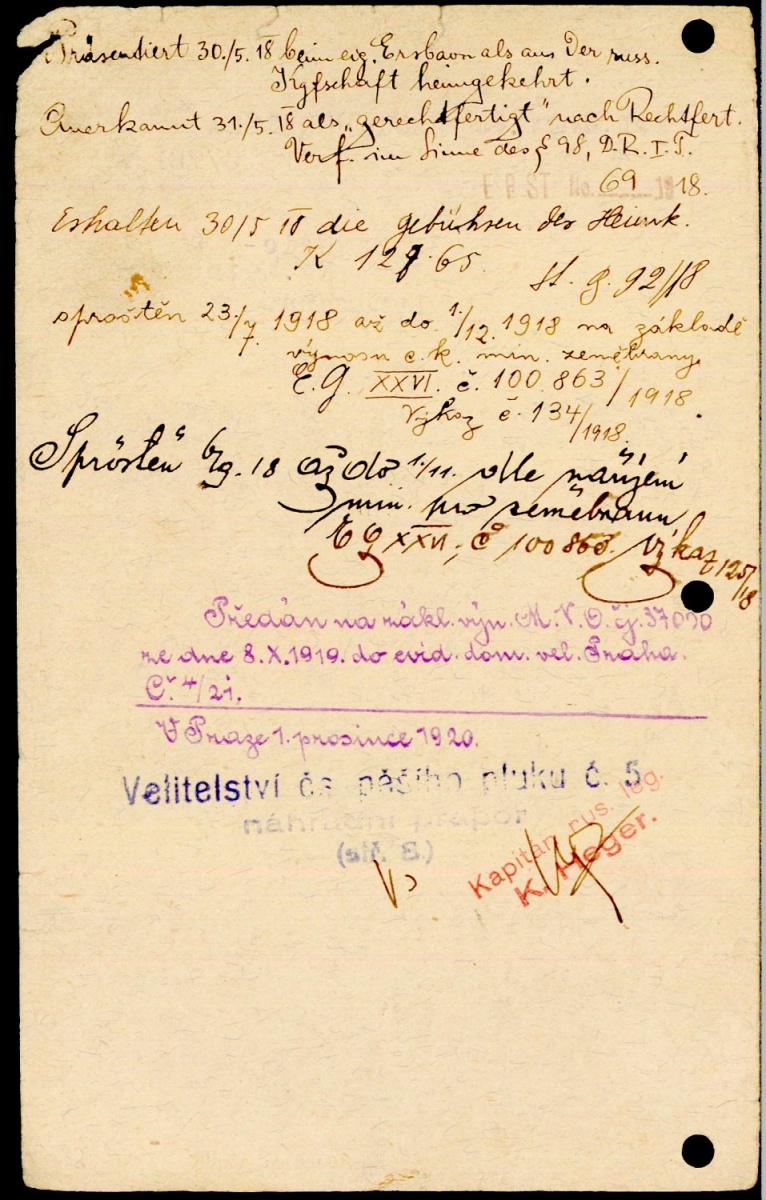 Präsentiert 30./5. 18 beim eig. Ersbaon als aus der russ.
Kgfschaft heimgekehrt.
Anerkannt 31./5. 18 als „gerechtfertigt" nach Rechtfert.
Verf. im Sinne des § 98, D. R. I. T.
E B ST No. 69 18.
Erhalten 30/5 18 die gebühren der Heimk.
K 127.65.
St. g. 92/18
sproštěn 23./7. 1918 až do 1./12. 1918 na základě
výnosu c. k. min. zeměbrany
E. G. XXVI. č. 100.863/1918.
Výkaz č. 134/1918.
Sproštěn 6/9. 18 až do 1./11. dle nařízení
min. pro zeměbranu
E G XXVI, č 100863. Výkaz 125/18
Předán na zákl. výn. M. V. O. čj. 37090
ze dne 8. X. 1919. do evid. dom. vel. Praha.
Č. 4/21.
V Praze 1. prosince 1920.
Velitelství čs pěšího pluku č. 5
náhradní prapor
Kapitán rus. leg.
K. Heger.